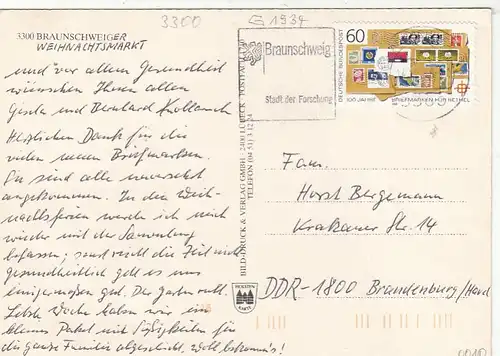 3300
G 1934
3300 BRAUNSCHWEIGER
WEIHNACHTSMARKT
und vor allem Gesundheit
wünschen Ihnen allen
Gerda und Bernhard
Herzlichen Dank für die
vielen neuen Briefmarken.
Sie sind alle unversehrt
angekommen. In den Weih-
nachtsferien werde ich mich
wieder mit der Sammlung
befassen; sonst reicht die Zeit nicht
gesundheitlich geht es uns
einigermaßen gut. Der Garten ruht.
Letzte Woche haben wir ein
kleines Paket mit Süßigkeiten für
die ganze Familie abgeschickt, wohl bekomm's!
BILD-DRUCK & VERLAG GMBH · 2400 LÜBECK · POSTFACH
TELEFON (04 51)
HOLSTEN
KARTE
Braunschweig
Stadt der Forschung
60
DEUTSCHE BUNDESPOST
100 JAHRE BRIEFMARKEN FÜR BETHEL
Fam.
Horst Bergemann
Krakauer Str. 14
DDR-1800 Brandenburg/Havel